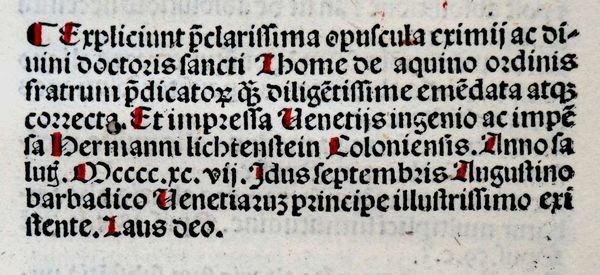 ¶ Expliciunt p̃clarissima opuscula eximij ac di-
uini doctoris sancti Thome de aquino ordinis
fratrum p̃dicatoꝝ ꝙ̃ diligẽtissime emẽdata atqꝫ
correcta. Et impressa Uenetijs ingenio ac impẽ
sa Hermanni lichtenstein Coloniensis. Anno sa
luṫ. Mcccc.xc.vij. Idus septembris Augustino
barbadico Uenetiaruꝫ principe illustrissimo exi
stente. Laus deo.